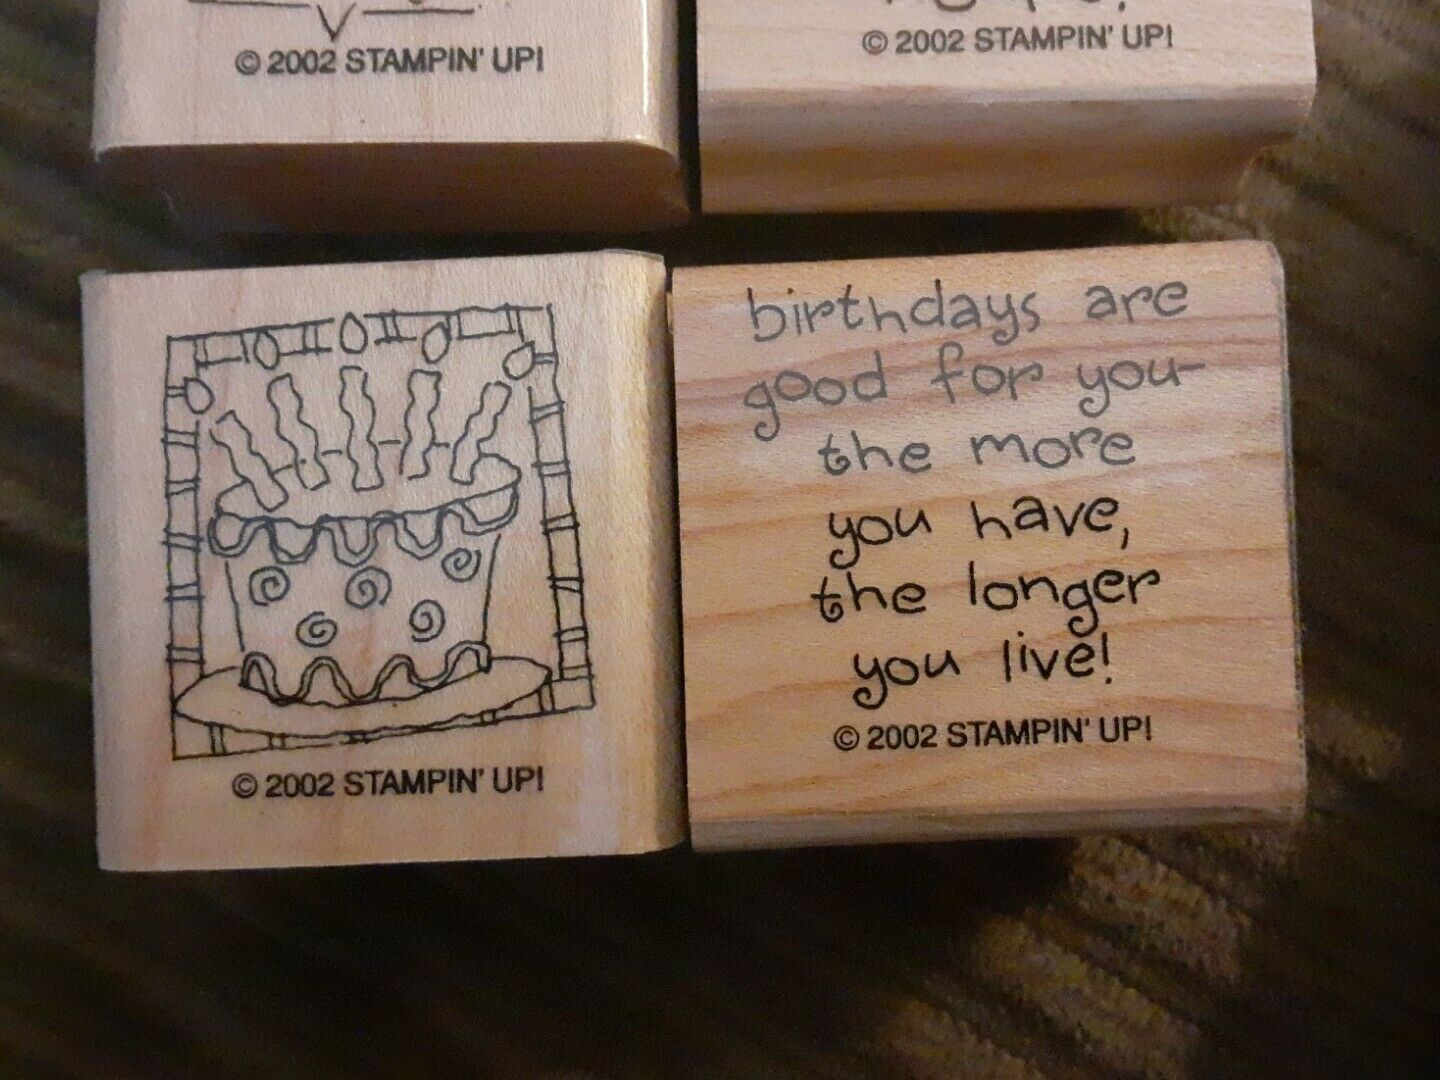 © 2002 STAMPIN' UP!
© 2002 STAMPIN' UP!
© 2002 STAMPIN' UP!
birthdays are
good for you-
the more
you have,
the longer
you live!
© 2002 STAMPIN' UP!